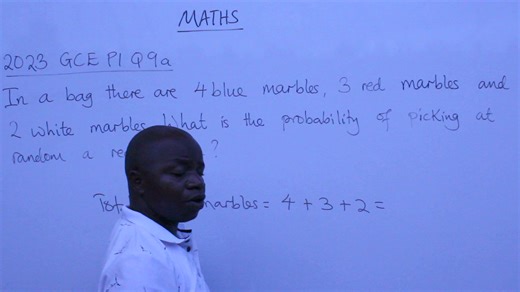 MATHS
2023 GCE P1 Q9a
In a bag there are 4 blue marbles, 3 red marbles and
2 white marbles. What is the probability of picking at
random a ?
marbles = 4 + 3 + 2 =